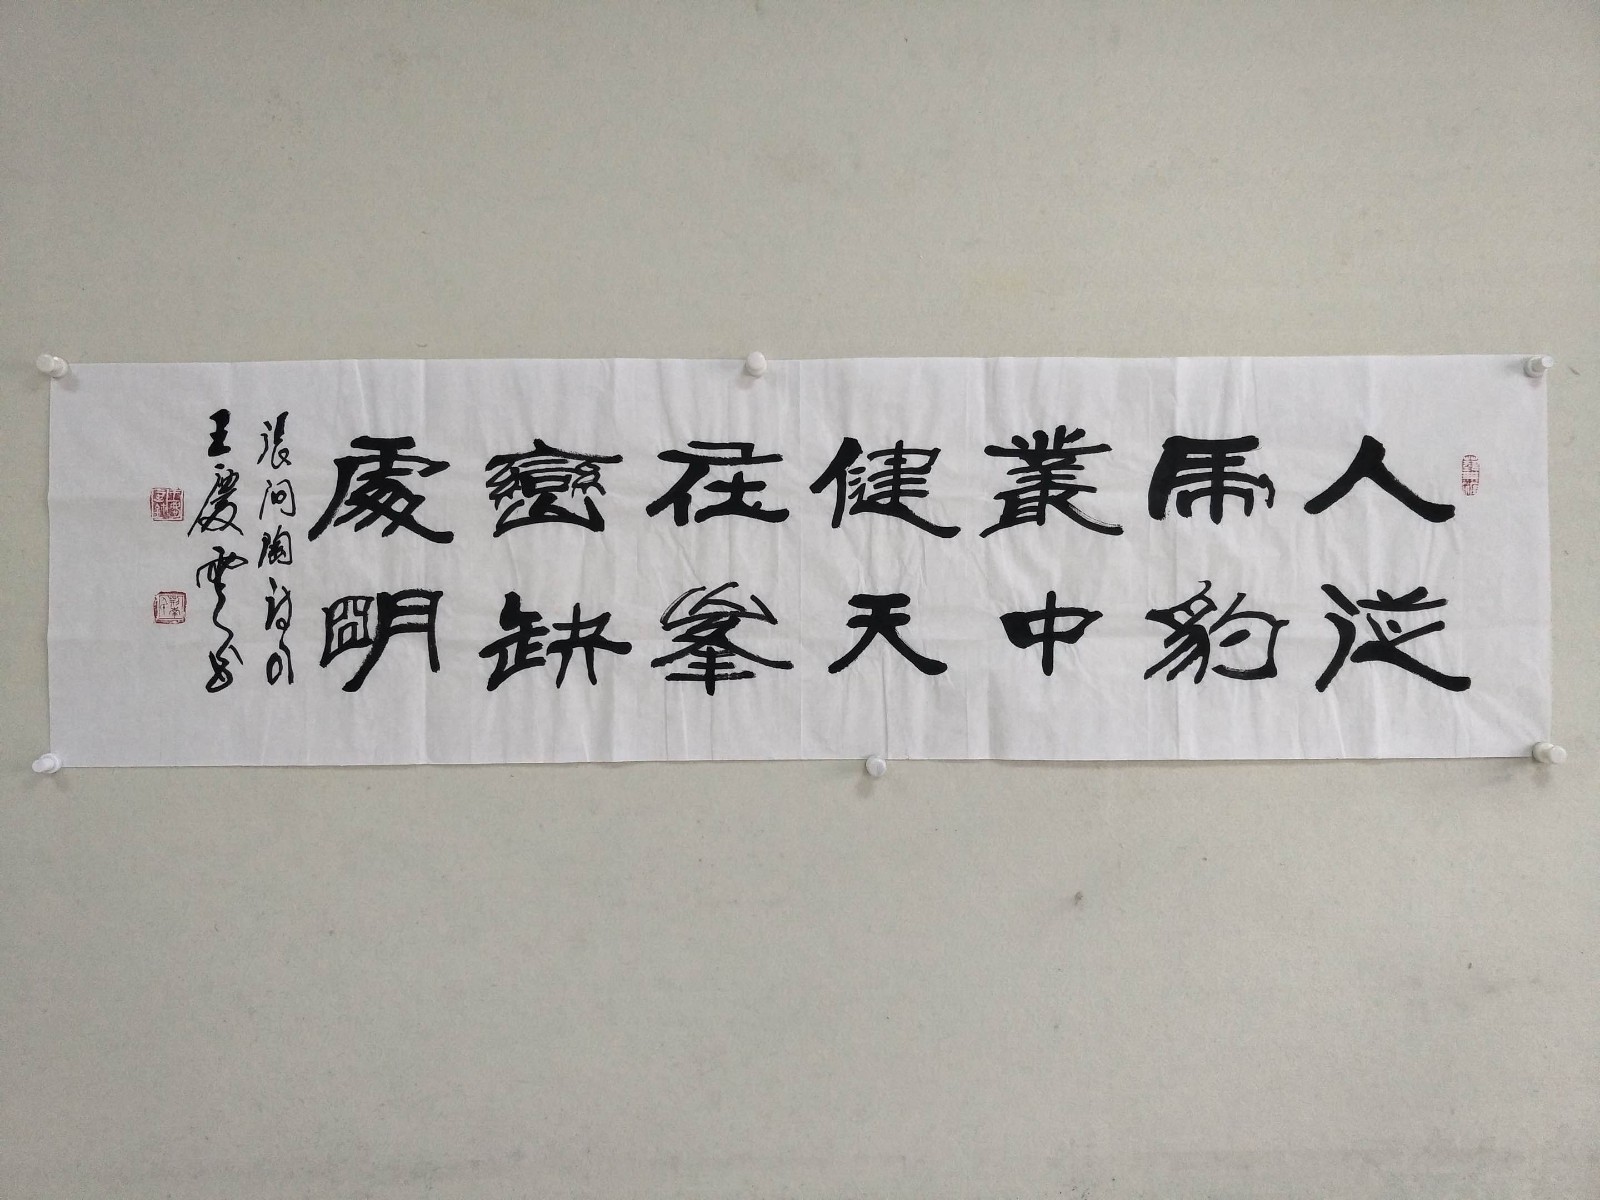 人從
虎豹
叢中
健天
在峯
巒缺
處明
張問陶詩句
王慶雲書